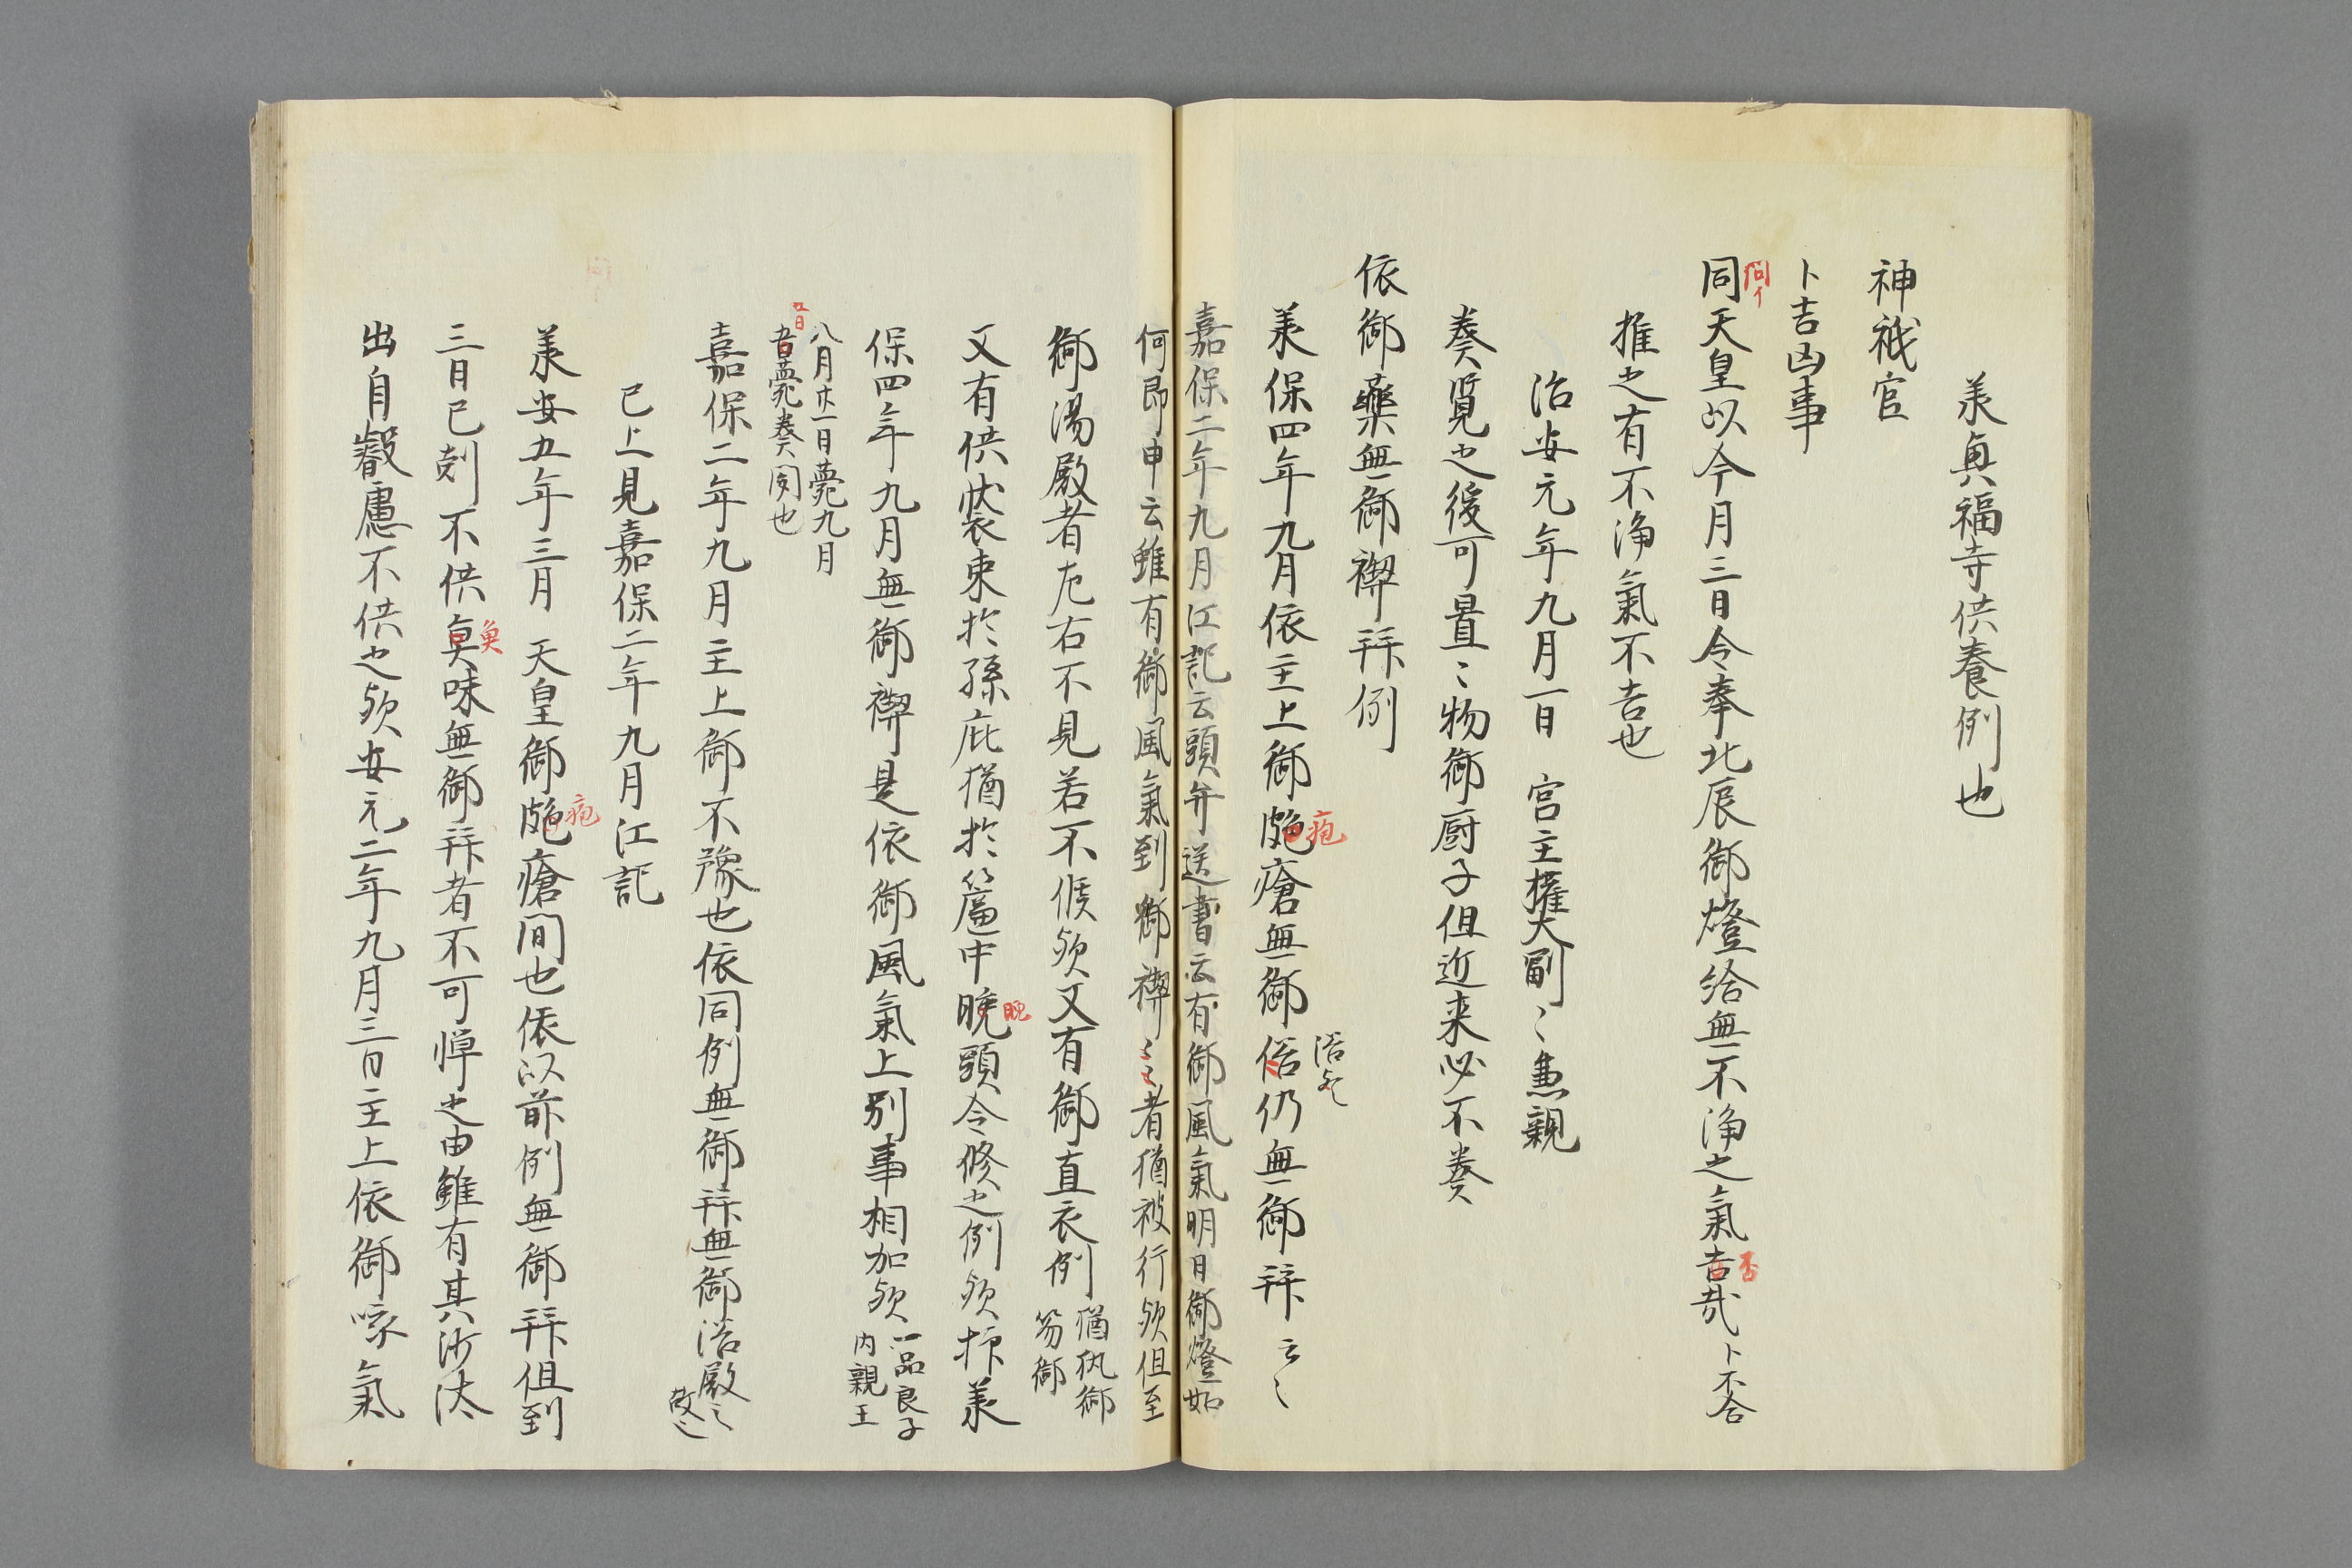 承真福寺供養例也
神祇官
卜吉凶事
同天皇以今月三日令奉北辰御燈給無不浄之氣吉哉卜不合
問イ
否
推之有不浄氣不吉也
治安元年九月一日　宮主權大副〻兼親
奏覧之後可置〻物御厨子但近来必不奏
依御藥無御禊拜例
承保四年九月依主上御皰瘡無御俗仍無御拜云〻
疱
浴
嘉保二年九月江記云頭弁送書云有御風氣明日御燈如
何即申云雖有御風氣到御禊〻〻者猶被行欤但至
御湯殿者左右不見若不候欤又有御直衣例猶執御笏御
又有供装束於孫庇猶於簾中晩頭令修之例欤抑承
晩
保四年九月無御禊是依御風氣上別事相加欤一品良子内親王
八月廿一日薨九月
五日薨奏聞也
五日
嘉保二年九月主上御不豫也依同例無御拜無御浴殿〻
已上見嘉保二年九月江記
承安五年三月　天皇御皰瘡間也依以前例無御拜但到
疱
三日巳剋不供魚味無御拜者不可憚之由雖有其沙汰
魚
出自叡慮不供之欤安元二年九月三日主上依御咳氣